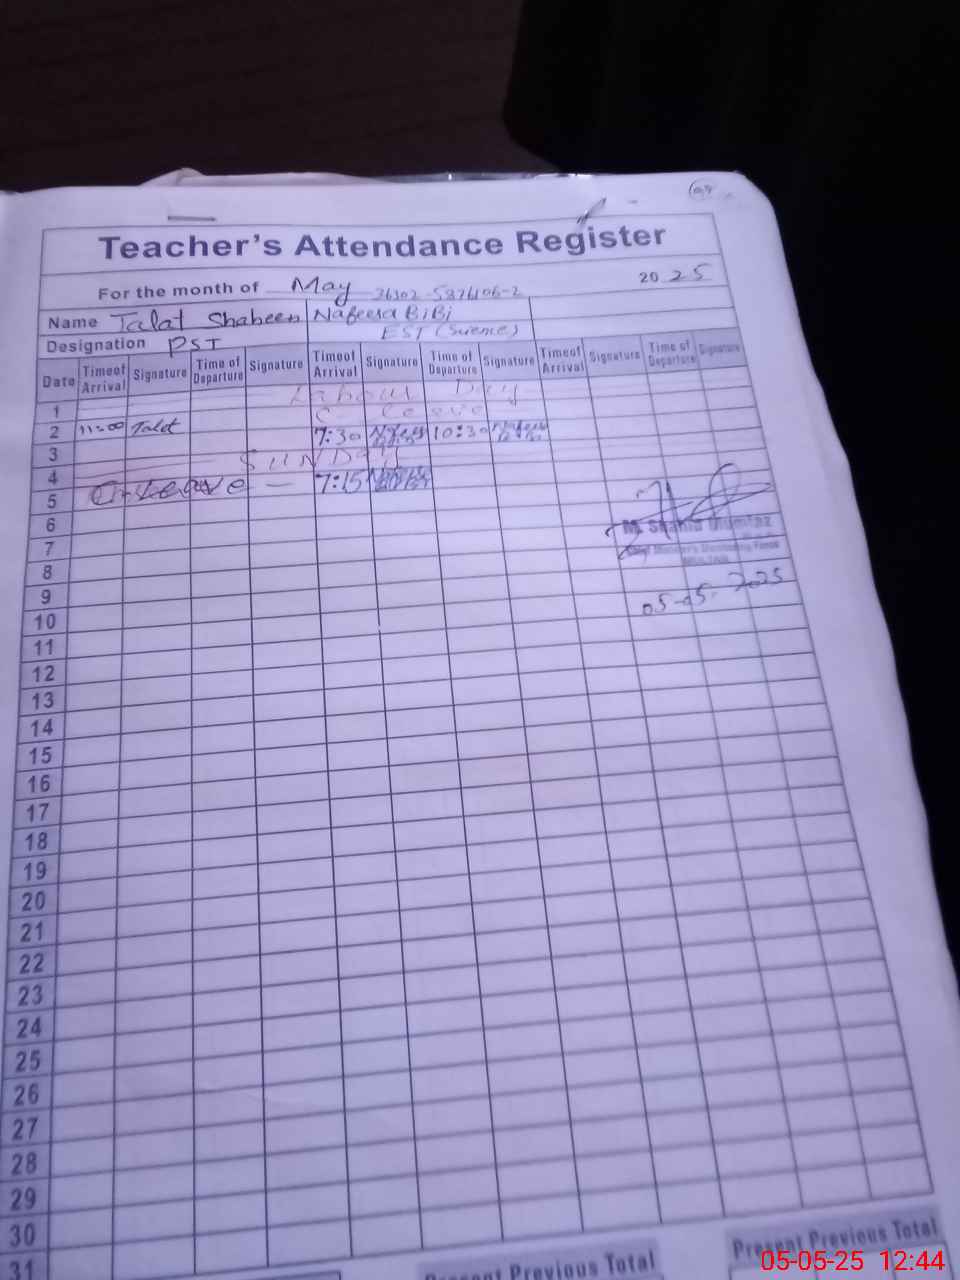 Teacher's Attendance Register
For the month of May 2025
Name Talat Shaheen Nafeesa BiBi
EST (Science)
Designation PST
Date Timeof Arrival Signature Time of Departure Signature Timeof Arrival Signature Time of Departure Signature Timeof Arrival Signature Time of Departure Signature
Labour Day
1
2 11:00 Talat 7:30 10:30
3
SUNDay
4
5 On Leave — 7:15
6
M. Shahid Mumtaz
7
8
9
05-05-2025
10
11
12
13
14
15
16
17
18
19
20
21
22
23
24
25
26
27
28
29
30
31
Present Previous Total Present Previous Total
05-05-25 12:44